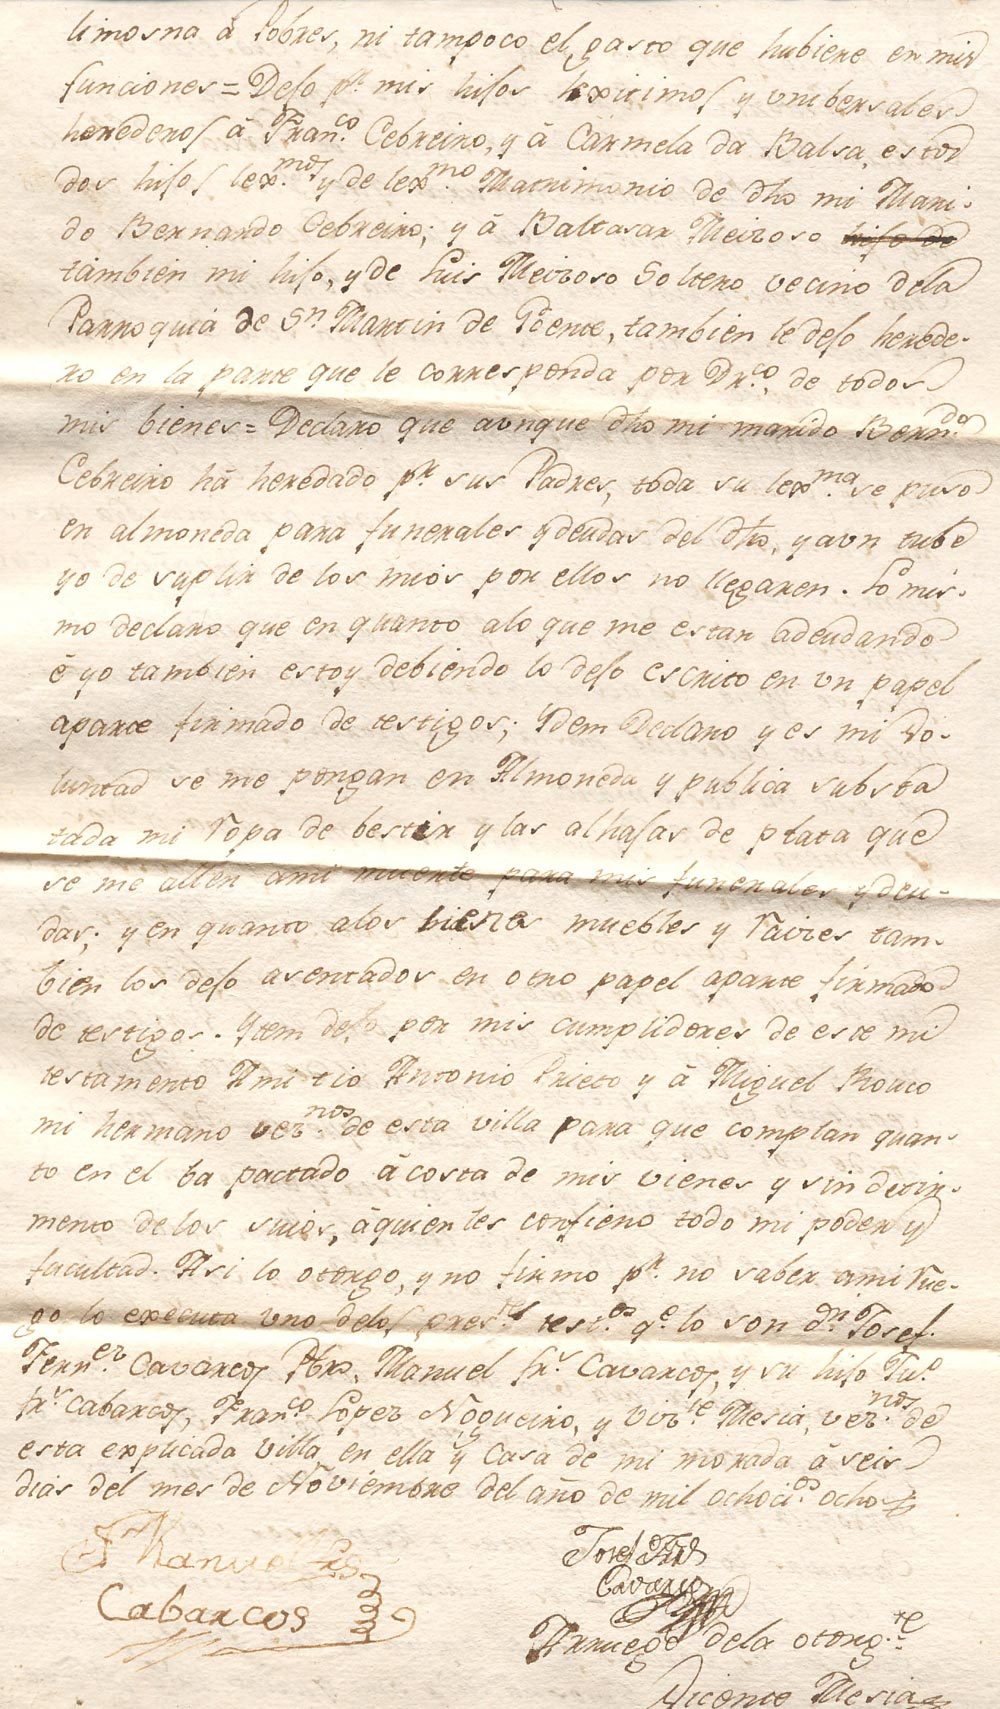 limosna á Pobres, ni tampoco el gasto que hubiere en mis
funciones = Dejo pr. mis hijos lexitimos y unibersales
herederos á Franco. Cebreiro, y á Carmela da Balsa, estos
dos hijos lexmos. y de lexmo. Matrimonio de dho mi Mari-
do Bernardo Cebreiro; y á Baltasar Meizoso hijo de
tambien mi hijo, y de Luis Meizoso Soltero vecino dela
Parroquia de Sn. Martin de Poente, tambien le dejo herede-
ro en la parte que le corresponda por Dro. de todos
mis bienes = Declaro que aunque dho mi marido Berndo.
Cebreiro há heredado pr. sus Padres, toda su lexma. se puso
en almoneda para funerales y deudas del dho, y aun tube
yo de suplir de los mios por ellos no llegaren. Lo mis-
mo declaro que en quanto alo que me estan adeudando
é yo tambien estoy debiendo lo dejo escrito en un papel
aparte firmado de testigos; Ydem Declaro y es mi Vo-
luntad se me pongan en Almoneda y publica substa
tada mi Ropa de bestir y las alhajas de plata que
se me allen ami muerte para mis funerales y deu-
das; y en quanto alos bienes muebles y Raizes tam-
bien los dejo asentados en otro papel aparte firmado
de testigos. Ytem dejo por mis cumplidores de este mi
testamento A mi tio Antonio Prieto y á Miguel Rouco
mi hermano veznos. de esta villa para que complan quan-
to en el ba pactado á costa de mis vienes y sin detri-
mento de los suios, á quienles confiero todo mi poder y
facultad. Asi lo otorgo, y no firmo pr. no saber ami Rue-
go lo executa uno delos prestes. testos. qe. lo son dn. Josef.
Fernez. Cavarcos Pbro, Manuel fr. Cavarcos, y su hijo Juo.
fr. Cabarcos, Franco. Lopez Nogueiro, y Vizte. Mesia, veznos. de
esta explicada villa, en ella y Casa de mi morada á seis
dias del mes de Noviembre del año de mil ochocios. ocho
Manuel Frs
Cabarcos
Josef Frd
Cavarcos
Arruego dela otorgte.
Vicente Mesia